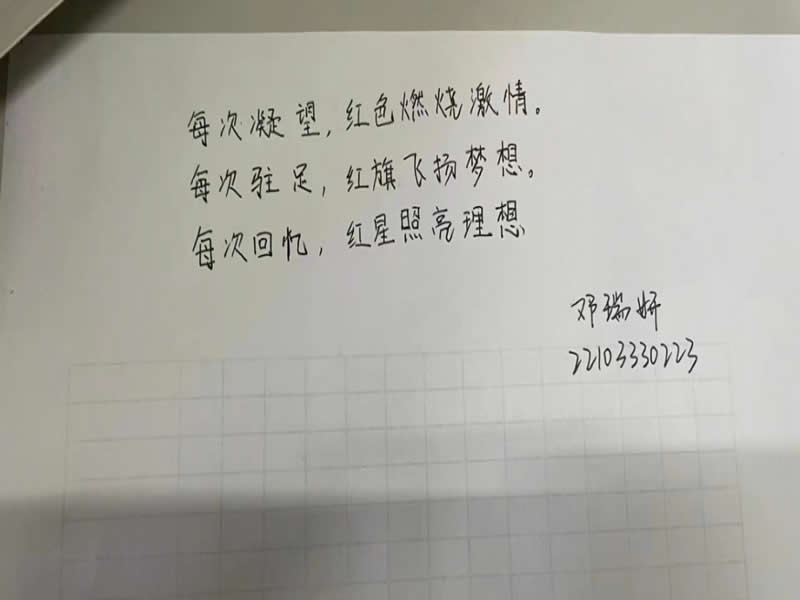 每次凝望,红色燃烧激情。
每次驻足,红旗飞扬梦想。
每次回忆,红星照亮理想
邓瑞妍
22103330223